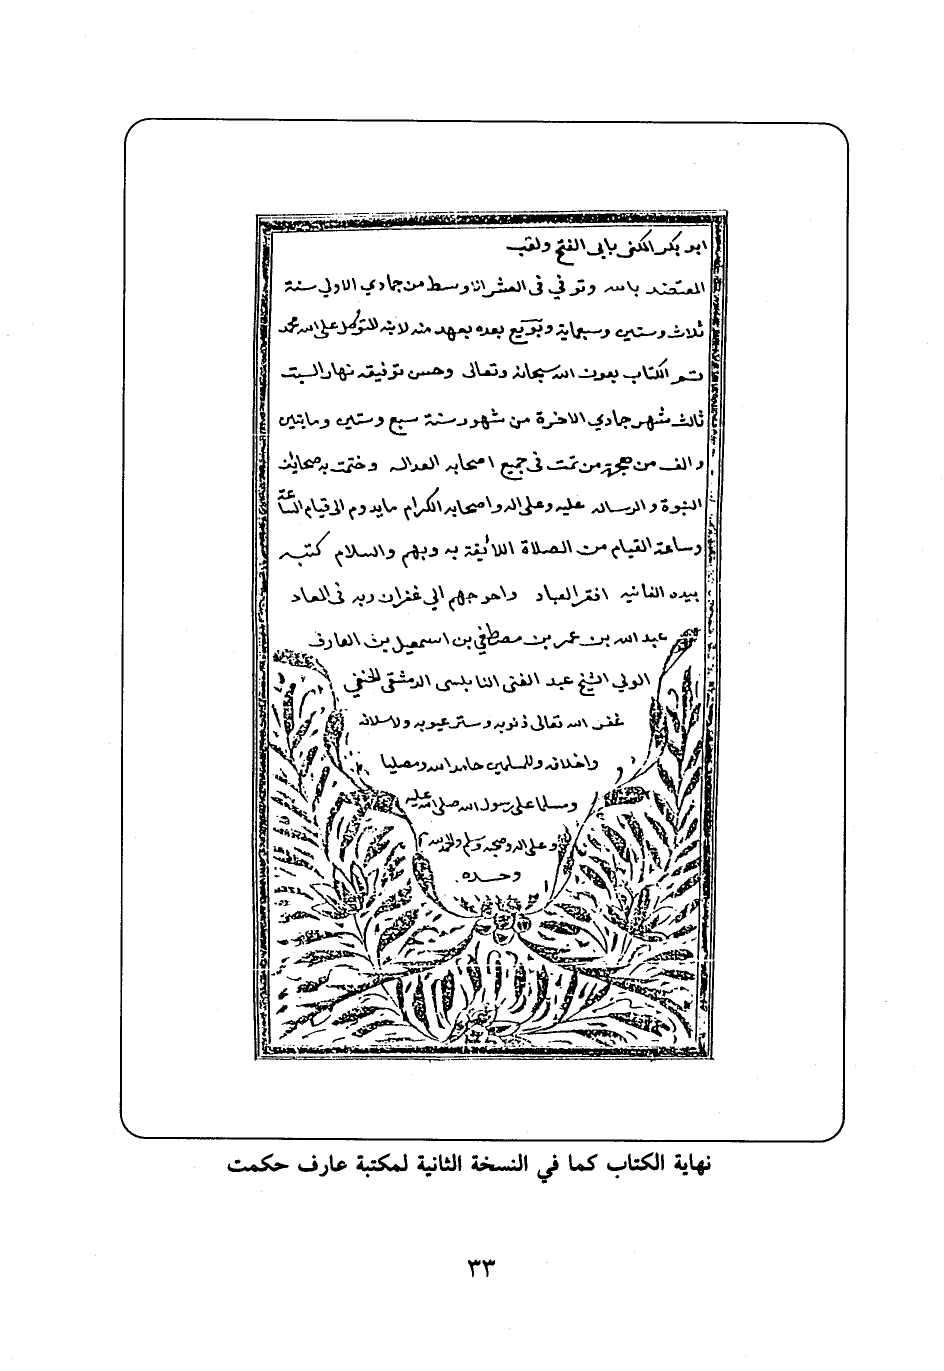 ابو بكر المكنى بابى الفتح ولقب
المعتضد بالله وتوفي فى العشر الاوسط من جمادي الاولي سنة
ثلاث وستين وسبعماية وبويع بعده بعهد منه لابنه المتوكل على الله محمد
تم الكتاب بعون الله سبحانه وتعالى وحسن توفيقه نهار السبت
ثالث شهر جمادي الاخرة من شهور سنة سبع وستين وماىتين
والف من هجرة من تمت فى جميع اصحابه العداله وختمت به
النبوة والرساله عليه وعلى اله واصحابه الكرام مايدوم الى قيام الساعة
وساعة القيام من الصلاة اللائيقة به وبهم والسلام كتبه
بيده الفانيه افقر العباد واحوجهم الي غفران ربه فى المعاد
عبد الله بن عمر بن مصطفي بن اسمعيل بن العارف
الولي الشيخ عبد الغنى النابلسى الدمشقى الحنفي
غفر الله تعالى ذنوبه وستر عيوبه ولاسلافه
واخلافه وللمسلمين حامدا لله ومصليا
ومسلما على رسول الله صلى الله عليه
وعلى اله وصحبه وسلم والحمد لله
وحده
نهاية الكتاب كما في النسخة الثانية لمكتبة عارف حكمت
٣٣